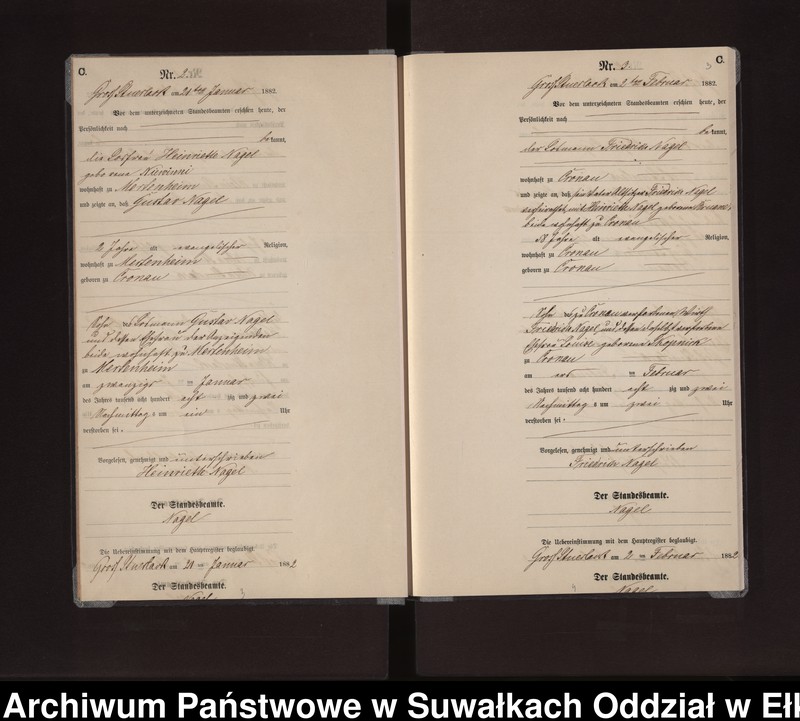 C.
Nr. 2.
Groß Stuerlack am 21ten Januar 1882.
Vor dem unterzeichneten Standesbeamten erschien heute, der
Persönlichkeit nach
bekannt,
die Losfrau Heinriette Nagel
geborene
wohnhaft zu Mertenheim
und zeigte an, daß Gustav Nagel
2 Jahre alt evangelischer Religion,
wohnhaft zu Mertenheim
geboren zu Cronau
Sohn des Losmann Gustav Nagel
und dessen Ehefrau der Anzeigenden
beide wohnhaft zu Mertenheim
zu Mertenheim
am zwanzigsten Januar
des Jahres tausend acht hundert achtzig und zwei
Nachmittags um ein Uhr
verstorben sei.
Vorgelesen, genehmigt und unterschrieben
Heinriette Nagel
Der Standesbeamte.
Nagel
Die Uebereinstimmung mit dem Hauptregister beglaubigt.
Groß Stuerlack am 21ten Januar 1882
Der Standesbeamte.
Nagel
3
C.
Nr. 3.
Groß Stuerlack am 2ten Februar 1882.
Vor dem unterzeichneten Standesbeamten erschien heute, der
Persönlichkeit nach
bekannt,
der Losmann Friedrich Nagel
wohnhaft zu Cronau
und zeigte an, daß sein Vater Altsitzer Friedrich Nagel
verheirathet mit Heinriette Nagel geborenen
beide wohnhaft zu Cronau
58 Jahre alt evangelischer Religion,
wohnhaft zu Cronau
geboren zu Cronau
Sohn des zu Cronau verstorbenen Wirth
Friedrich Nagel und dessen daselbst verstorbene
Ehefrau Louise geborene
zu Cronau
am ersten Februar
des Jahres tausend acht hundert achtzig und zwei
Nachmittags um zwei Uhr
verstorben sei.
Vorgelesen, genehmigt und unterschrieben
Friedrich Nagel
Der Standesbeamte.
Nagel
Die Uebereinstimmung mit dem Hauptregister beglaubigt.
Groß Stuerlack am 2ten Februar 1882
Der Standesbeamte.
Nagel
Archiwum Państwowe w Suwałkach Oddział w Eł